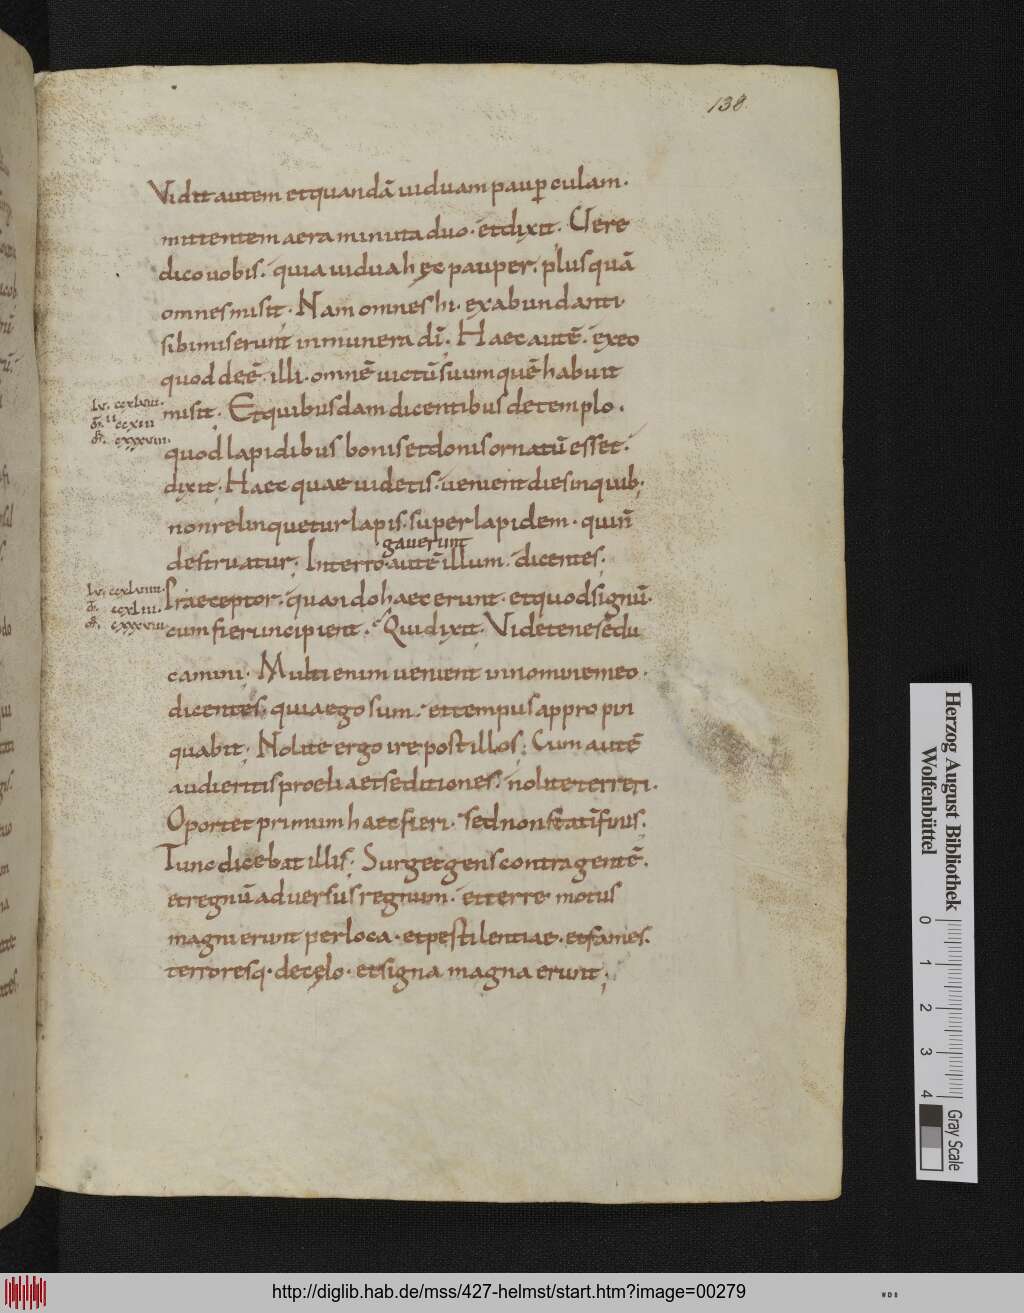 138.
Vidit autem et quandā uiduam paup̱ culam·
mittentem aera minuta duo· et dixit· Uere
dico uobis· quia uidua hęc pauper· plus quā
omnes misit· Nam omnes hi· ex abundanti
sibi miserunt in munera dī· Haec autē· ex eo
quod deē illi· omnē uictū suum quē habuit
misit· Et quibusdam dicentibus de templo·
quod lapidibus bonis et donis ornatū esset·
dixit· Haec quae uidetis· uenient dies in quib;
non relinquetur lapis super lapidem· qui n̄
gauerunt
destruatur; Interro· autē illum· dicentes;
Praeceptor· quando haec erunt· et quod signū·
cum fieri incipient· Qui dixit· Videte ne sēdu
camini· Multi enim uenient in nomine meo·
dicentes· quia ego sum· et tempus appropin
quabit· Nolite ergo ire post illos; Cum autē
audieritis proelia et seditiones· nolite terreri·
Oportet primum haec fieri· sed non statī finis;
Tunc dicebat illis; Surget gens contra gentē·
et regnū aduersus regnum· et terre motus
magni erunt per loca· et pestilentiae· et fames·
terroresq· de cęlo· et signa magna erunt;
Herzog August Bibliothek
Wolfenbüttel
0 1 2 3 4
Gray Scale
http://diglib.hab.de/mss/427-helmst/start.htm?image=00279